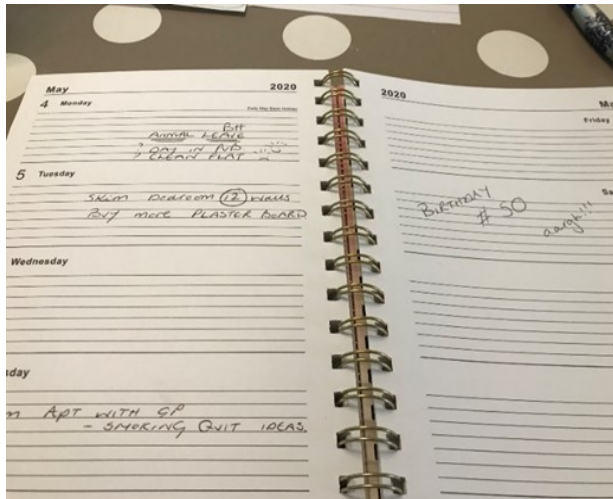 May 2020
4 Monday
Early May Bank Holiday
BH
ANNUAL LEAVE
? DAY IN PUB
? CLEAN FLAT
5 Tuesday
Skim bedroom 12 walls
Buy more PLASTER BOARD
Wednesday
sday
m APT WITH GP
- SMOKING QUIT IDEAS.
2020 Ma
Friday
Sa
BIRTHDAY
# 50
aargh!!!